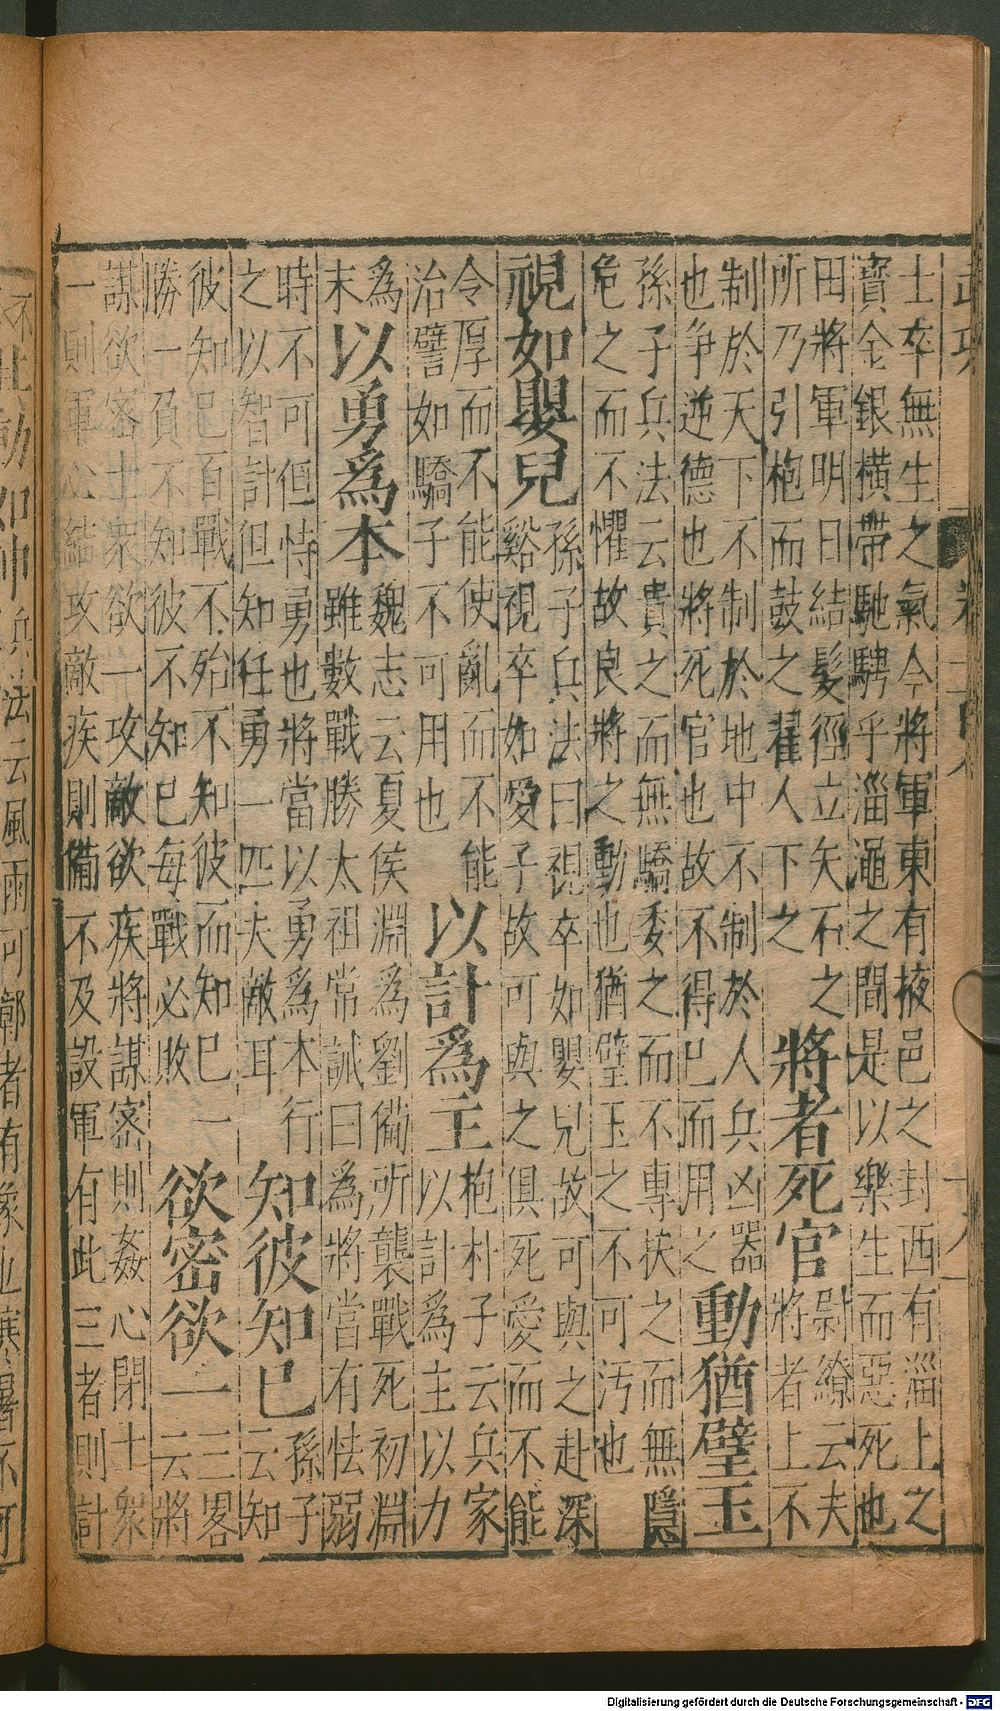 士卒無生之氣今將軍東有掖邑之封西有淄上之
寳金銀橫帶馳騁乎淄澠之間是以樂生而惡死也
田將軍明日結髮徑立矢石之
所乃引枹而鼓之翟人下之
將者死官
尉繚云夫
將者上不
制於天下不制於地中不制於人兵凶器
也争逆德也將死官也故不得已而用之
動猶璧玉
孫子兵法云貴之而無驕委之而不專扶之而無隱
危之而不懼故良將之動也猶璧玉之不可汚也
視如嬰兒
孫子兵法曰視卒如嬰兒故可與之赴深
谿視卒如愛子故可與之俱死愛而不能
令厚而不能使亂而不能
治譬如驕子不可用也
以計爲主
枹朴子云兵家
以計爲主以力
爲
末
以勇爲本
魏志云夏侯淵爲劉備所襲戰死初淵
雖數戰勝太祖常誡曰爲將當有怯弱
時不可但恃勇也將當以勇爲本行
之以智計但知任勇一匹夫敵耳
知彼知已
孫子
云知
彼知已百戰不殆不知彼而知已一
勝一負不知彼不知已每戰必敗
欲密欲一
三畧
云將
謀欲密士衆欲一攻敵欲疾將謀密則姦心閉士衆
一則軍心結攻敵疾則備不及設軍有此三者則計
動如神
兵法云風雨可鄣者有象也寒暑不可
Digitalisierung gefördert durch die Deutsche Forschungsgemeinschaft - DFG